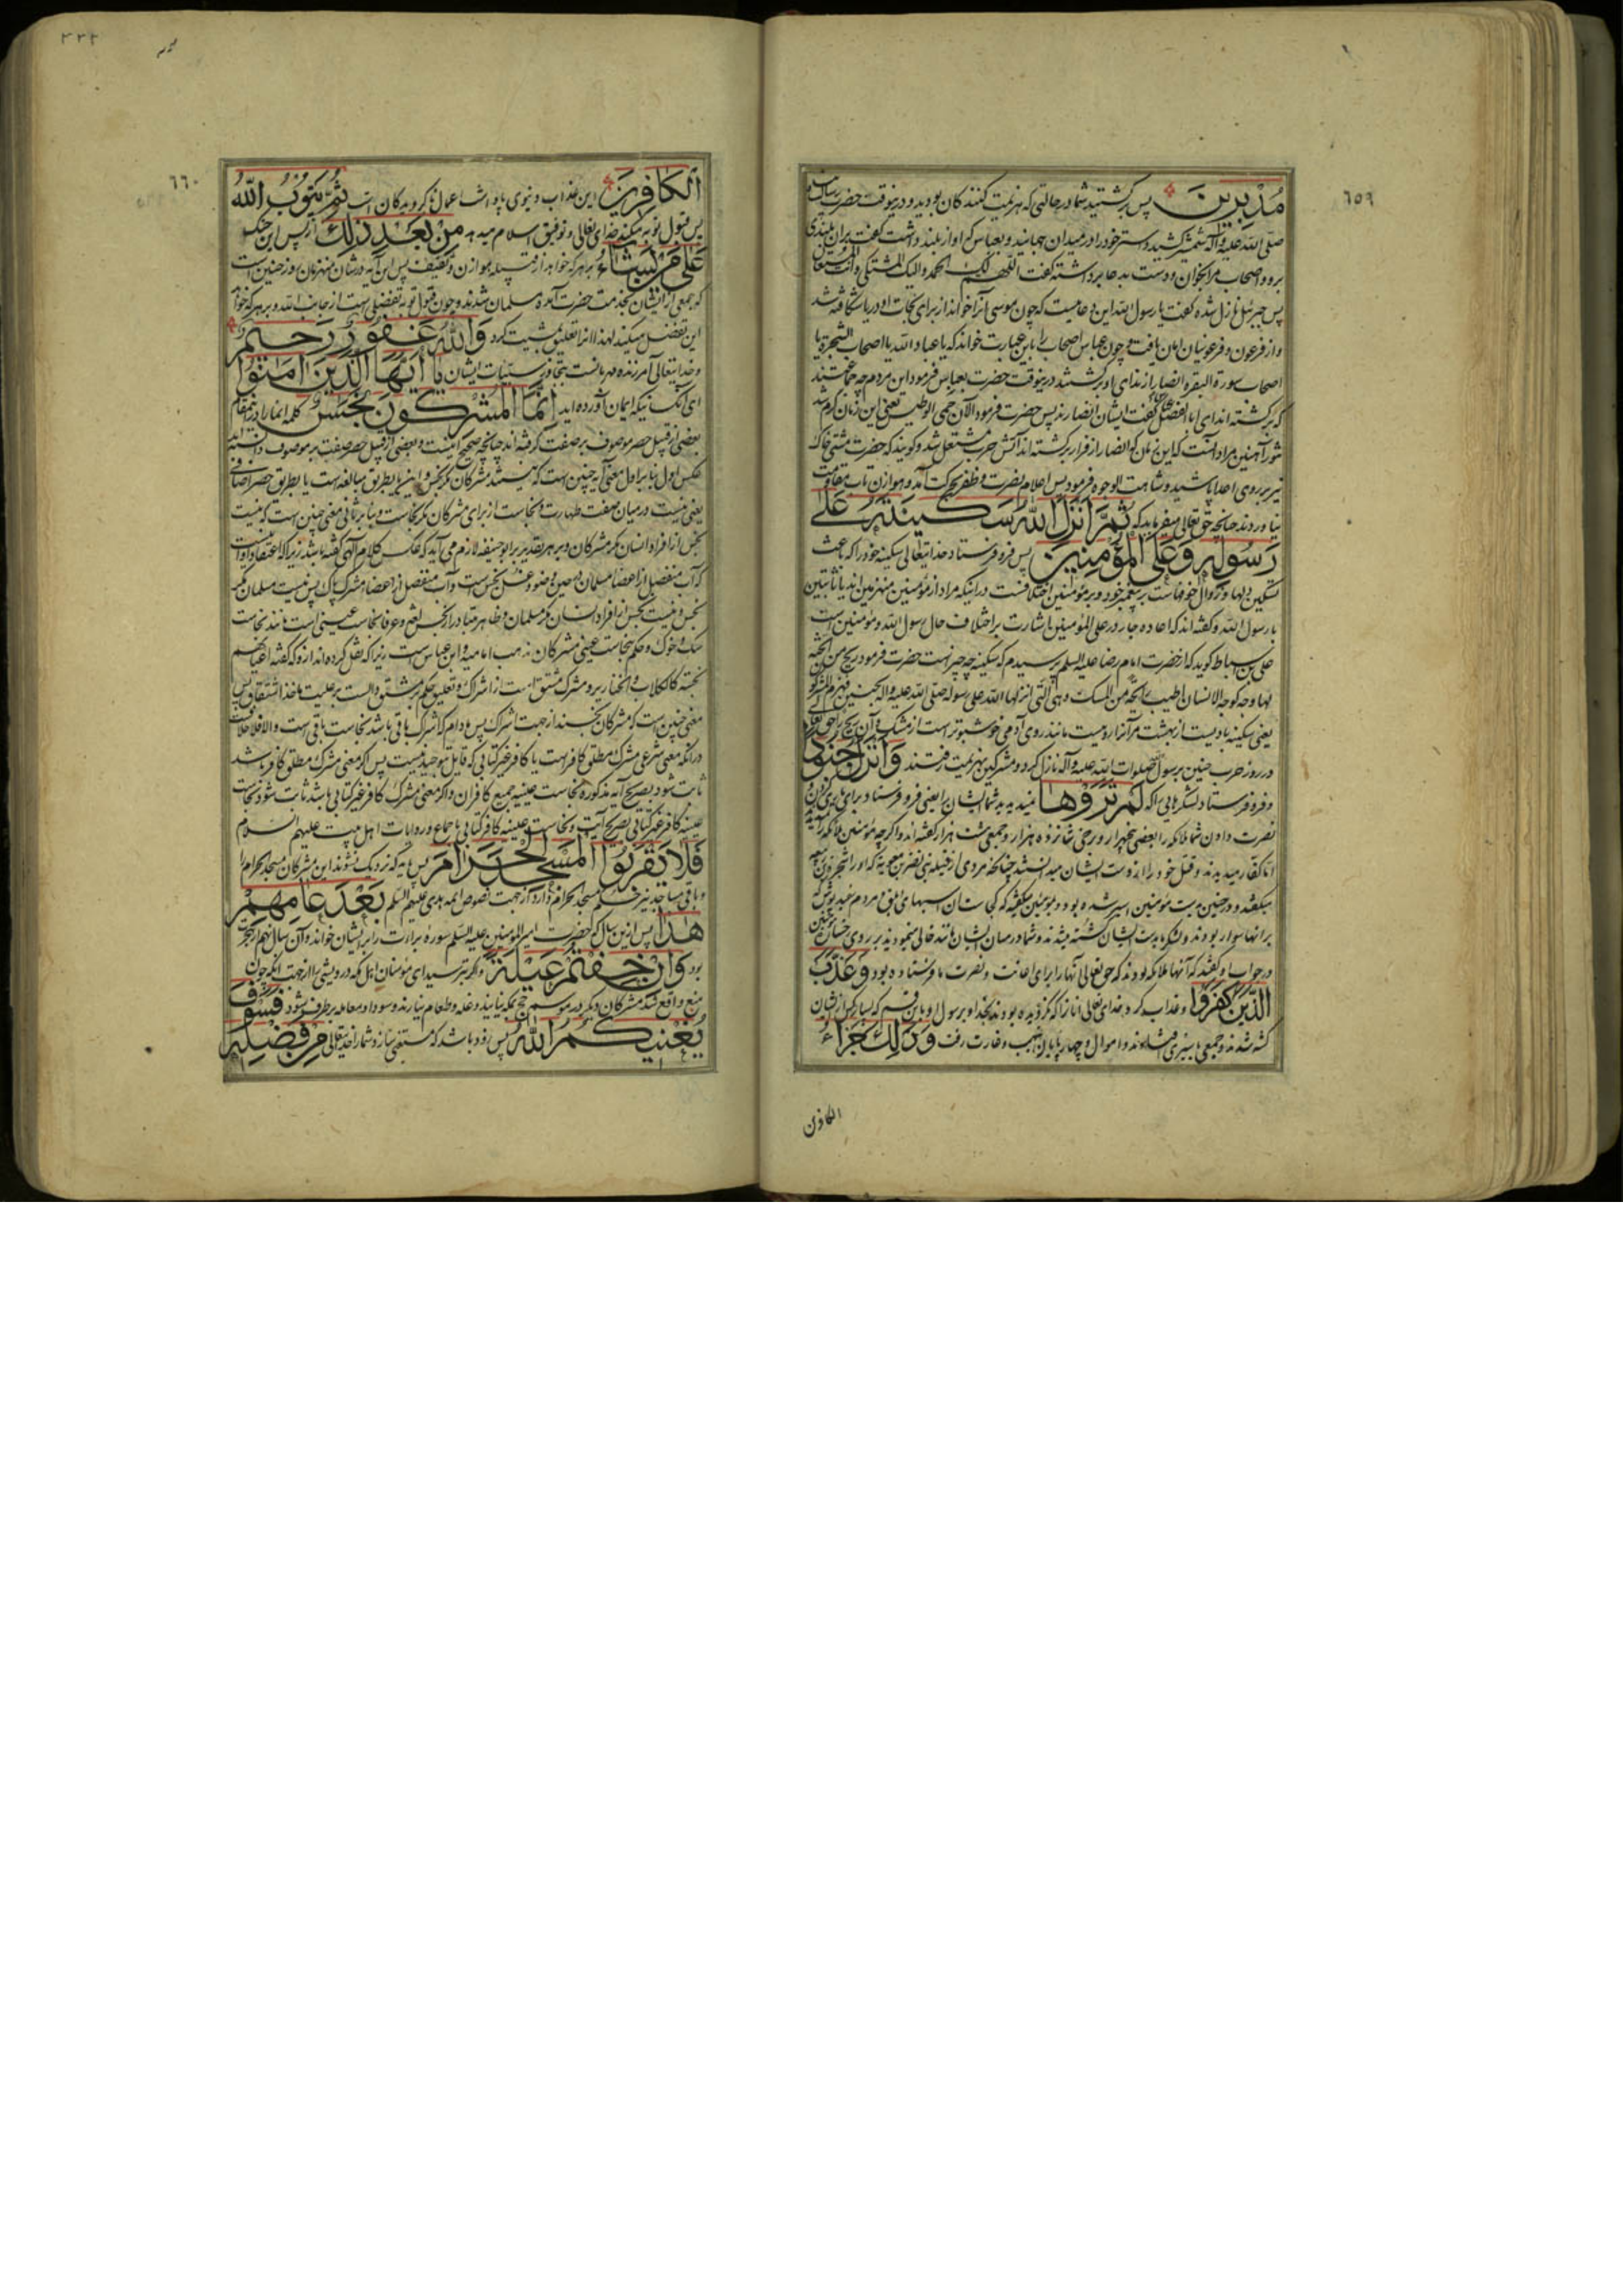 ٦٥٩
مُدْبِرِينَ پس برگشتید شما در حالتی که هزیمت کنندکان بودید و درینوقت حضرت رسالت
صلّی الله علیه وآله شمشیر کشید و ستر خود را در میدان جهانید و بعباس که آواز بلند داشت گفت بر این بلندی
برو و اصحاب مرا بخوان و دست بدعا برداشته گفت اللهم لک الحمد والیک المشتکی وانت المستعان
پس جبرئیل نازل شده گفت یا رسول الله این دعاییست که چون موسی آنرا خواند از برای نجات او دریا شکافته شد
و از فرعون و فرعونیان امان یافت و چون عباس اصحاب را باین عبارت خواند که یا عباد الله یا اصحاب الشجرة یا
اصحاب سورة البقره انصار از ندای او برگشتند درینوقت حضرت بعباس فرمود این مردم چه جماعتند
که برگشته اند ای ابا الفضل عباس گفت ایشان انصارند پس حضرت فرمود الآن حمی الوطیس یعنی این زمان گرم شد
تنور آهنین مراد آنست که این زمان که انصار از فرار برگشته اند آتش حرب مشتعل شد و گویند که حضرت مشتی خاک
نیز بر روی اعدا پاشید و شاهت الوجوه فرمود پس اعلام نصرت و ظفر بحرکت آمد و هوازن تاب مقاومت
نیاوردند چنانچه حق تعالی میفرماید که ثُمَّ اَنْزَلَ اللّٰهُ سَكِينَتَهُ عَلٰى
رَسُولِهِ وَعَلَى الْمُؤْمِنِينَ پس فرو فرستاد خدایتعالی سکینه خود را که باعث
تسکین دلها و زوال خوفهاست بر پیغمبر خود و بر مؤمنین اختلافست در اینکه مراد از مؤمنین منهزمین اند یا ثابتین
با رسول الله و گفته اند که اعاده جار در علی المؤمنین اشارت بر اختلاف حال رسول الله و مؤمنین است
علی بن اسباط گوید که از حضرت امام رضا علیه السلام پرسیدم که سکینه چه چیز است حضرت فرمود ریح من الجنّة
لها وجه کوجه الانسان اطیب رائحة من المسک وهی الّتی انزلها الله علی رسوله صلّی الله علیه وآله بحنین فهزم المشرکین
یعنی سکینه بادیست از بهشت مر آنرا روییست مانند روی آدمی خوشبوتر است از مشک و آن ریح را حق تعالی
در روز حرب حنین برسول صلوات الله علیه وآله نازل کرد و مشرکین بهزیمت رفتند وَاَنْزَلَ جُنُودًا
و فرو فرستاد لشکرهایی که لَمْ تَرَوْهَا نمی دیدید شما ایشانرا یعنی فرو فرستاد برای یاری کردن و
نصرت دادن شما ملائکه را بعضی پنجهزار و برخی شانزده هزار و جمعی هشت هزار گفته اند و اگر چه مؤمنین ملائکه را ندیدند
اما کفار میدیدند و قتل خود را از دست ایشان میدانستند چنانچه مردی از قبیله بنی نضر بن معویه که او را شجره بن ربیعه
میگفتند و در حنین بدست مؤمنین اسیر شده بود و بمؤمنین میگفت که کجا شدند آن اسبهای ابلق و مردم سفید پوش که
بر آنها سوار بودند و لشکر ما بدست ایشان کشته میشدند و شما در میان ایشان مانند خالی مینمودید بر روی رخسار مؤمنین
در جواب او گفتند که آنها ملائکه بودند که حق تعالی آنها را برای اعانت و نصرت ما فرستاده بود وَعَذَّبَ
الَّذِينَ كَفَرُوا و عذاب کرد خدای تعالی آنانرا که نگرویده بودند بخدا و برسول او باین قسم که بسیار کس از ایشان
کشته شدند و جمعی باسیری افتادند و اموال و چهارپایان بنهب و غارت رفت وَذٰلِكَ جَزَاءُ
الکافرین
٢٣٢
٦٦٠
الْكَافِرِينَ این عذاب دنیوی پاداش اعمال ناگرویدگان است ثُمَّ يَتُوبُ اللّٰهُ
پس قبول توبه میکند خدای تعالی و توفیق اسلام میدهد مِنْ بَعْدِ ذٰلِكَ از پس این جنگ
عَلٰى مَنْ يَشَاءُ بر هر که خواهد از قبیله هوازن و ثقیف پس این آیه در شان منهزمان روز حنین است
که جمعی از ایشان بخدمت حضرت آمده مسلمان شدند و چون قبول توبه تفضلی است از جانب الله و بر هر که خواهد
این تفضل میکند لهذا آنرا تعلیق بمشیت کرد وَاللّٰهُ غَفُورٌ رَحِيمٌ
و خدایتعالی آمرزنده و مهربانست بتجاوز سیئات ایشان يَا اَيُّهَا الَّذِينَ اٰمَنُوا
ای آنکسانیکه ایمان آورده اید اِنَّمَا الْمُشْرِكُونَ نَجَسٌ کلمه انما را در اینمقام
بعضی از قبیل حصر موصوف بر صفت گرفته اند چنانچه صحیح اینست و بعضی از قبیل حصر صفت بر موصوف دانسته اند
عکس اول بنا بر اول معنی آیه چنین است که نیستند مشرکان مگر نجس و این یا بطریق مبالغه است یا بطریق حصر اضافی
یعنی نیست در میان صفت طهارت و نجاست از برای مشرکان مگر نجاست و بنا بر ثانی معنی چنین است که نیست
نجس از افراد انسان مگر مشرکان و بر هر تقدیر بر ابو حنیفه لازم می آید که عکس کلام الهی گفته باشد زیرا که اعتقاد او اینست
که آب منفصل از اعضا مسلمان در حین وضو و غسل نجس است و آب منفصل از اعضاء مشرک پاک پس نیست مسلمان مگر
نجس و نیست نجس از افراد انسان مگر مسلمان و ظاهر متبادر از نجس لغة و عرفا نجاست عینی است مانند نجاست
سک و خوک و حکم بنجاست عینی مشرکان مذهب امامیه و ابن عباس است زیرا که نقل کرده اند از و که گفته اعیانهم
نجسة کالکلاب والخنازیر و مشرک مشتق است از اشراک و تعلیق حکم بر مشتق دالست بر علیت ماخذ اشتقاق پس
معنی چنین است که مشرکان نجسند از جهت اشراک پس مادام که شرک باقی باشد نجاست باقی است و الا فلا خلافست
در آنکه معنی شرعی مشرک مطلق کافر است یا کافر غیر کتابی که قایل بتوحید نیست پس اگر معنی مشرک مطلق کافر باشد
ثابت شود بصریح آیه مذکوره نجاست عینیه جمیع کافران و اگر معنی مشرک کافر غیر کتابی باشد ثابت شود نجاست
عینیه کافر غیر کتابی بصریح آیت و نجاست عینیه کافر کتابی باجماع و روایات اهل بیت علیهم السلام
فَلَا يَقْرَبُوا الْمَسْجِدَ الْحَرَامَ پس باید که نزدیک نشوند این مشرکان مسجد الحرام را
و باقی مساجد نیز حکم مسجد الحرام دارد از جهت نصوص ائمه هدی علیهم السلام بَعْدَ عَامِهِمْ
هٰذَا پس ازین سال که حضرت امیر المؤمنین علیه السلام سوره براءت را بر ایشان خواند و آن سال نهم از هجرت
بود وَاِنْ خِفْتُمْ عَيْلَةً و اگر بترسید ای مؤمنان اهل مکه درویشی را از جهت آنکه چون
منع واقع شد مشرکان دیگر در موسم حج بمکه نیایند و غله و طعام نیارند و سودا و معامله بر طرف شود فَسَوْفَ
يُغْنِيكُمُ اللّٰهُ پس زود باشد که مستغنی سازد شما را خدایتعالی مِنْ فَضْلِهِ